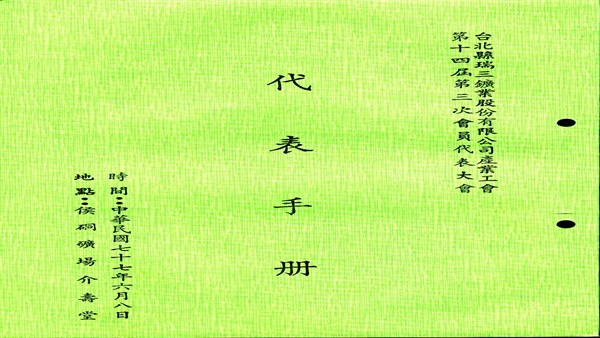 台北縣瑞三鑛業股份有限公司產業工會
第十四屆第三次會員代表大會
代表手冊
時間：中華民國七十七年六月八日
地點：侯硐礦場介壽堂